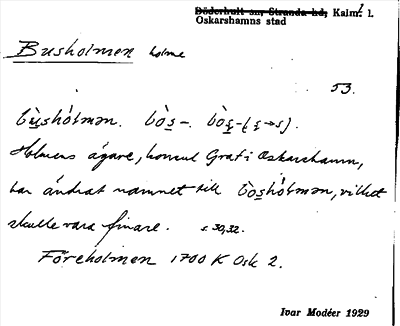 Döderhult sn, Stranda hd, Kalm. l.
Oskarshamns stad
Busholmen holme
53.
bùshòlmən. bòs-. bòs-(s→s).
Holmens ägare, konsul Graf i Oskarshamn,
har ändrat namnet till bòshòlmən, vilket
skulle vara finare. s. 30, 32.
Föreholmen 1700 K Osk 2.
Ivar Modéer 1929